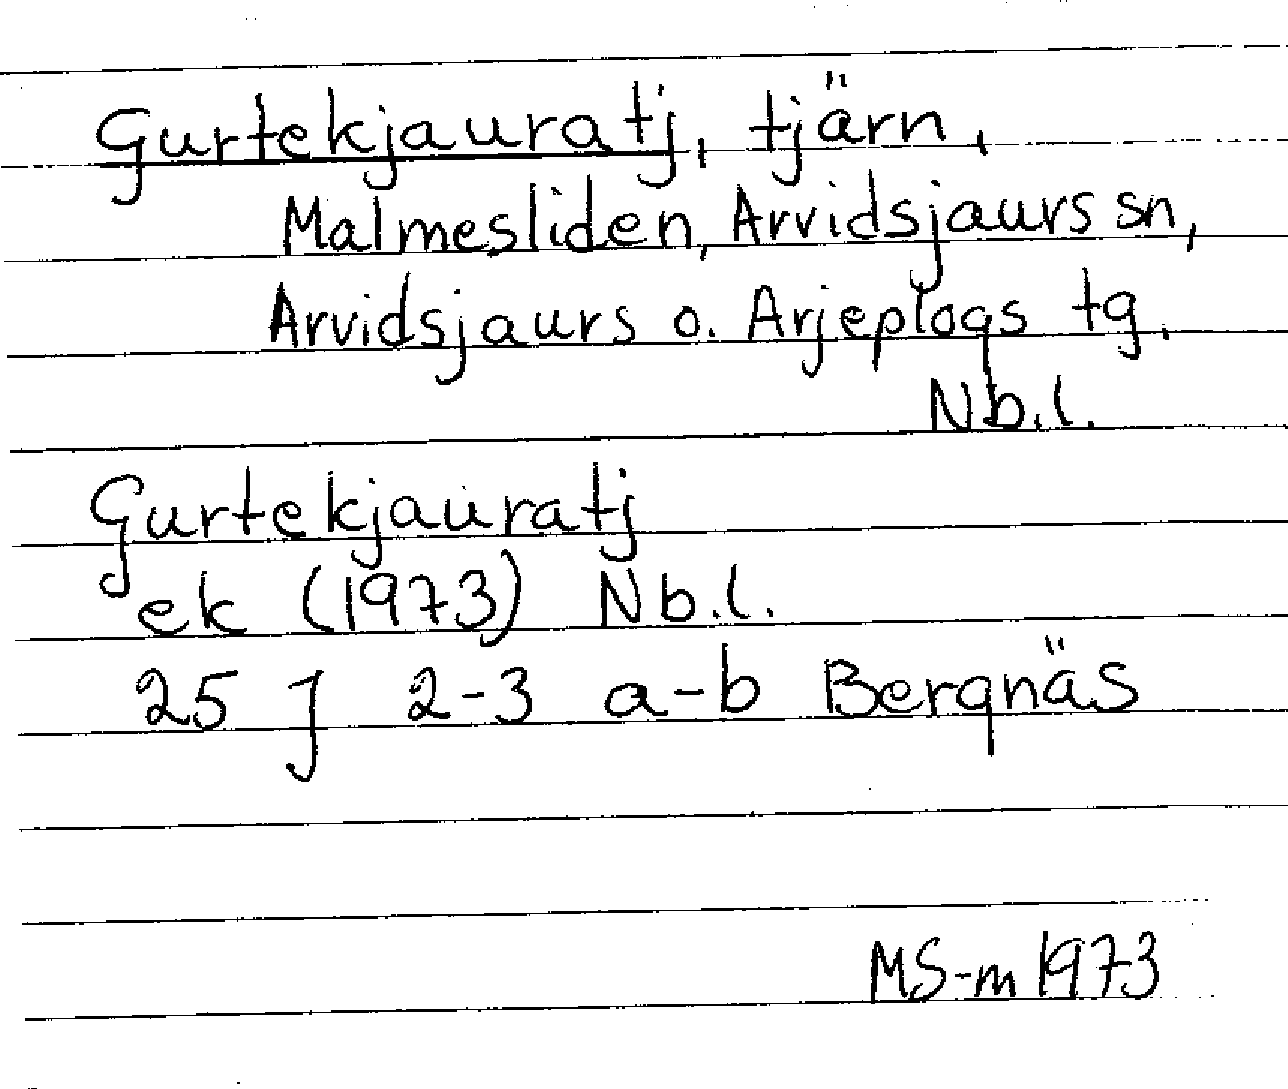 Gurtekjauratj, tjärn,
Malmesliden, Arvidsjaurs sn,
Arvidsjaurs o. Arjeplogs tg.
Nb.l.
Gurtekjauratj
ek (1973) Nb.l.
25 J 2-3 a-b Bergnäs
MS-m 1973